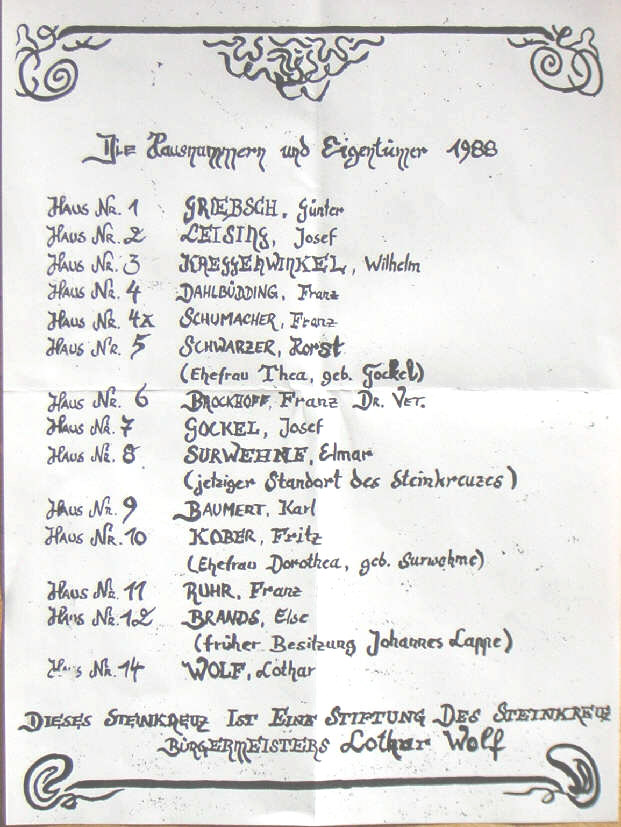 Die Hausnummern und Eigentümer 1988
Haus Nr. 1 GRIEBSCH, Günter
Haus Nr. 2 LEISING, Josef
Haus Nr. 3 KREGGENWINKEL, Wilhelm
Haus Nr. 4 DAHLBÜDDING, Franz
Haus Nr. 4a SCHUMACHER, Franz
Haus Nr. 5 SCHWARZER, Horst
(Ehefrau Thea, geb. Gockel)
Haus Nr. 6 BROCKHOFF, Franz Dr. Vet.
Haus Nr. 7 GOCKEL, Josef
Haus Nr. 8 SURWEHME, Elmar
(jetziger Standort des Steinkreuzes)
Haus Nr. 9 BAUMERT, Karl
Haus Nr. 10 KOBER, Fritz
(Ehefrau Dorothea, geb. Surwehme)
Haus Nr. 11 RUHR, Franz
Haus Nr. 12 BRANDS, Else
(früher Besitzung Johannes Lappe)
Haus Nr. 14 WOLF, Lothar
DIESES STEINKREUZ IST EINE STIFTUNG DES STEINKREUZ
BÜRGERMEISTERS Lothar Wolf